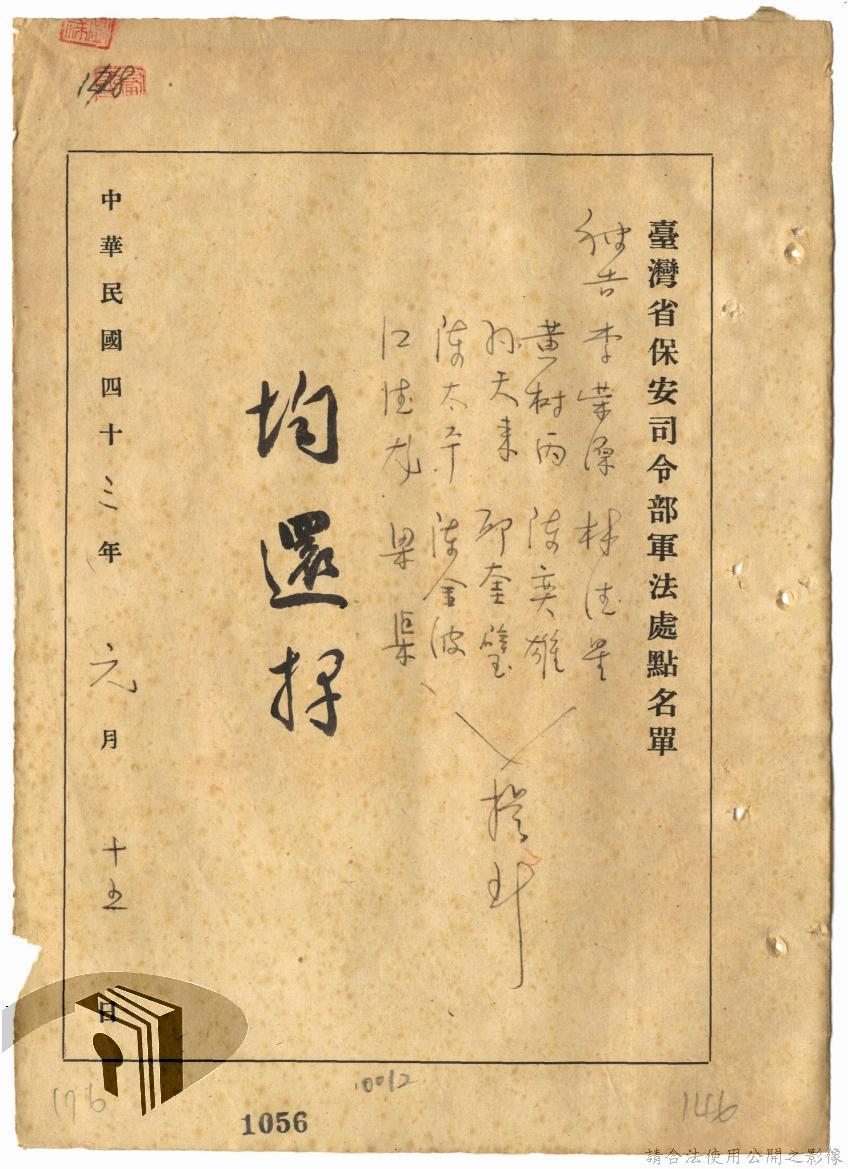 臺灣省保安司令部軍法處點名單
被告 李荣 林德
黃樹丙 陳奕雄
孫天來 邱奎璧
陳太平 陳金波
江德龙 梁渠
均還押
中華民國四十三年 元月 十五日
148
176
0012
1056
146
請合法使用公開之影像